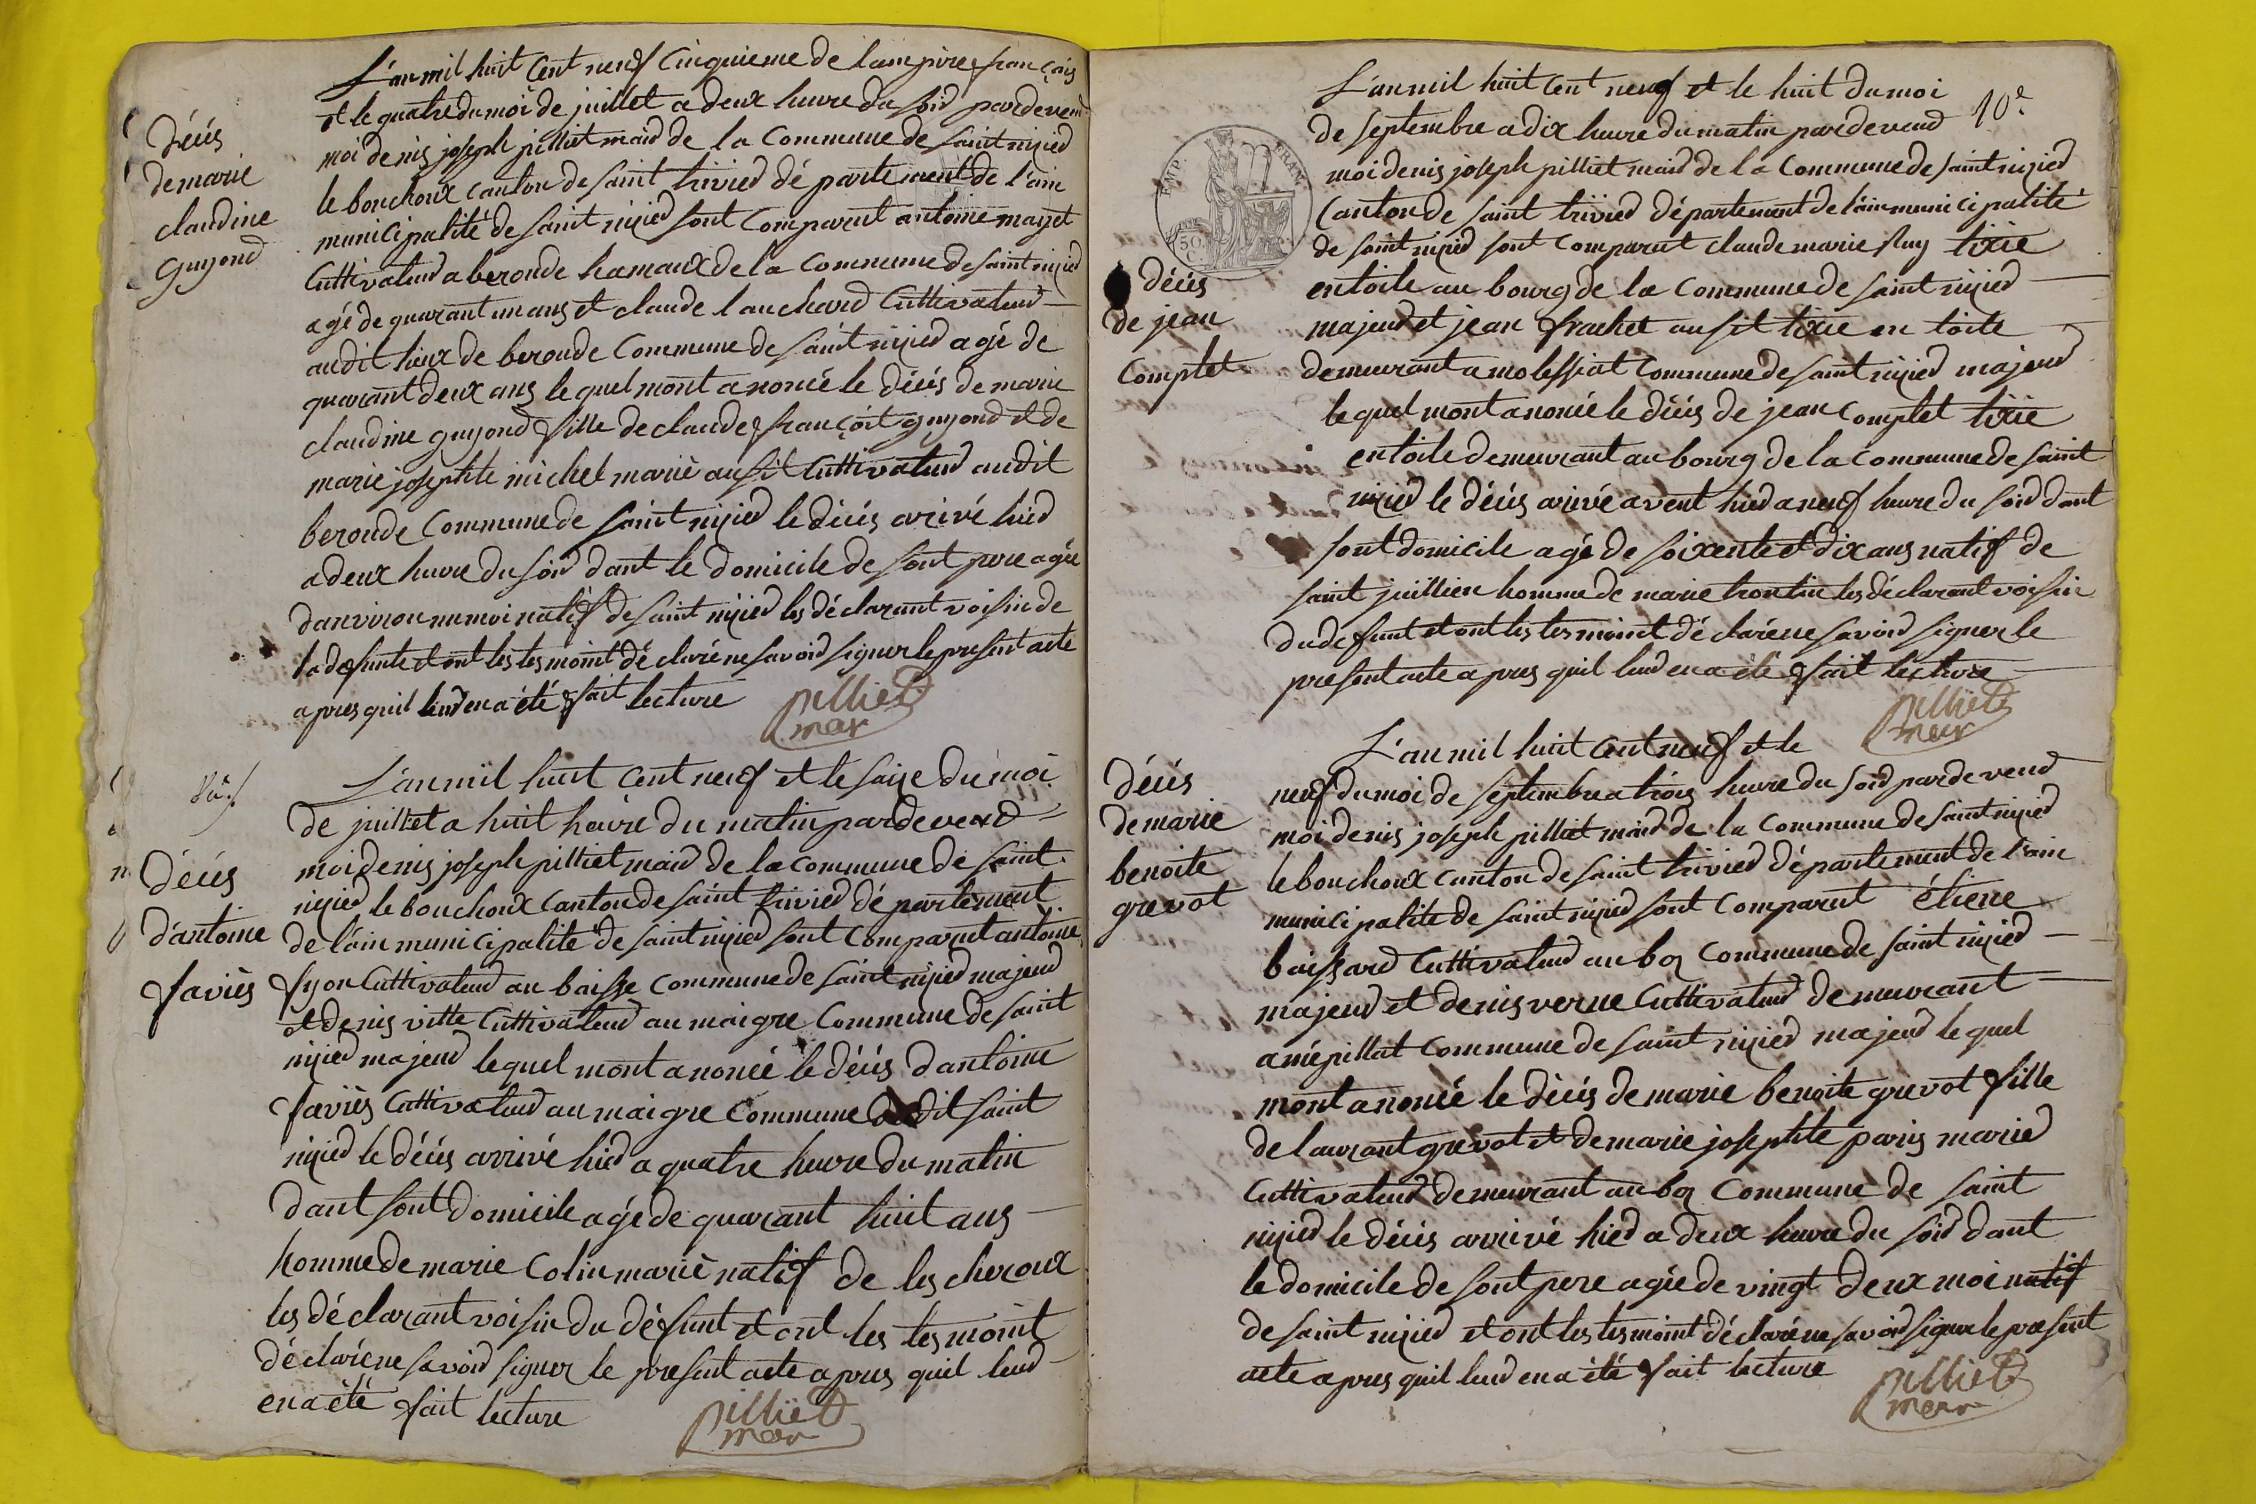 décés
de marie
claudine
guyond
L'an mil huit cent neuf cinquieme de lampire françois
et le quatre du moi de juillet a deux heure du soird pardevend
moi denis joseph pilliet maird de la commune de saint nizied
le bouchoux canton de saint trivied département de l'ain
municipalité de saint nizied sont comparent antoine mazet
cultivateud a beronde hamaux de la commune de saint nizied
agé de quarant un ans et claude lauchard cultivateud
audit lieux de beronde commune de saint nizied agé de
quarant deux ans le quel mont anoncé le décés de marie
claudine guyond fille de claude françoit guyond et de
marie josephte michel marié ausit cultivateud audit
beronde commune de saint nizied le décés arivé hied
a deux heure du soird dant le domicile de sont pere agée
danviron un moi natif de saint nizied les déclarant voisin de
la defunte et ont les tesmoint déclaré ne savoird signer le present acte
apres quil leud en a été fait lecture
pilliet
mer
décés
d'antoine
faviés
L'an mil huit cent neuf et le saize du moi
de juilliet a huit heure du matin pardevend
moi denis joseph pilliet maird de la commune de saint
nizied le bouchoux canton de saint trivied département
de l'ain municipalité de saint nizied sont comparent antoine
fyon cultivateud au baisse commune de saint nizied majeud
et denis vitte cultivateud au maigre commune de saint
nizied majeud le quel mont anoncé le décés dantoine
faviés cultivateud au maigre commune dudit saint
nizied le décés arrivé hied a quatre heure du matin
dant sont domicile agé de quarant huit ans
homme de marie colin marié natif de les cheroux
les déclarant voisin du défunt et ont les tesmoint
déclaré ne savoird signer le present acte apres quil leud
en a été fait lecture
pilliet
mer
10e
EMP. FRAN.
50 C
décés
de jean
complet
L'an mil huit cent neuf et le huit du moi
de septembre a dix heure du matin pardevend
moi denis joseph pilliet maird de la commune de saint nizied
canton de saint trivied département de l'ain municipalité
de saint nizied sont comparent claude marie ruy tixie
en toile au bourg de la commune de saint nizied
majeud et jean frachet ausit tixie en toile
demeurant a molessiat commune de saint nizied majeud
le quel mont anoncé le décés de jean complet tixie
en toile demeurant au bourg de la commune de saint
nizied le décés arivé avent hied a neuf heure du soird dant
sont domicile agé de soixente et dix ans natif de
saint juillien homme de marie trontin les déclarant voisin
du defunt et ont les tesmoint déclaré ne savoird signer le
present acte apres quil leud en a été fait lecture
pilliet
mer
décés
de marie
benoite
grevot
L'an mil huit cent neuf et le
neuf du moi de septembre a trois heure du soird pardevend
moi denis joseph pilliet maird de la commune de saint nizied
le bouchoux canton de saint trivied département de l'ain
municipalité de saint nizied sont comparent étiene
baissard cultivateud au boz commune de saint nizied
majeud et denis verne cultivateud demeurant
a mépillat commune de saint nizied majeud le quel
mont anoncé le décés de marie benoite grevot fille
de laurant grevot et de marie josephte paris maried
cultivateud demeurant au boz commune de saint
nizied le décés arrivé hied a deux heure du soird dant
le domicile de sont pere agée de vingt deux moi natif
de saint nizied et ont les tesmoint déclaré ne savoird signer le present
acte apres quil leud en a été fait lecture
pilliet
mer